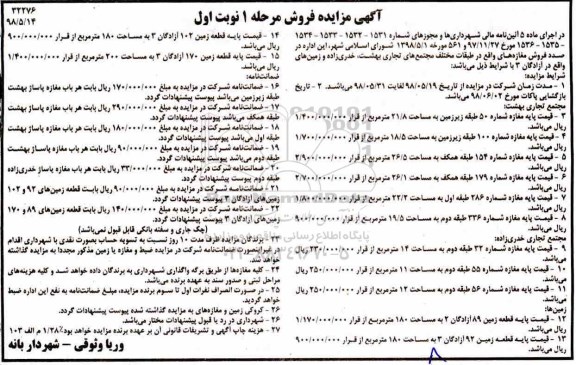 ۳۲۲۷۶
۹۸/۵/۱۴
آگهی مزایده فروش مرحله ۱ نوبت اول
در اجرای ماده ۵ آئین‌نامه مالی شهرداری‌ها و مجوزهای شماره ۱۵۳۱ - ۱۵۳۲ - ۱۵۳۳ - ۱۵۳۴
- ۱۵۳۵ - ۱۵۳۶ مورخ ۹۷/۱۱/۲۷ و ۵۶۱ مورخه ۱۳۹۸/۵/۱ شورای اسلامی شهر، این اداره در
صدد فروش مغازه‌های واقع در طبقات مختلف مجتمع‌های تجاری بهشت، خدری‌زاده و زمین‌های
واقع در آزادگان ۳ با شرایط ذیل می‌باشد:
شرایط مزایده:
۱ - مدت زمان شرکت در مزایده از تاریخ ۹۸/۰۵/۱۹ لغایت ۹۸/۰۵/۳۱ می‌باشد. ۲ - تاریخ
بازگشایی پاکات مورخ ۹۸/۰۶/۰۲ می‌باشد.
مجتمع تجاری بهشت:
۳ - قیمت پایه مغازه شماره ۵۰ طبقه زیرزمین به مساحت ۲۱/۸ مترمربع از قرار ۱/۴۰۰/۰۰۰/۰۰۰
ریال می‌باشد.
۴ - قیمت پایه مغازه شماره ۱۰۰ طبقه زیرزمین به مساحت ۱۸/۵ مترمربع از قرار ۱/۷۰۰/۰۰۰/۰۰۰
ریال می‌باشد.
۵ - قیمت پایه مغازه شماره ۱۵۴ طبقه همکف به مساحت ۲۶/۵ مترمربع از قرار ۲/۹۰۰/۰۰۰/۰۰۰
ریال می‌باشد.
۶ - قیمت پایه مغازه شماره ۱۷۹ طبقه همکف به مساحت ۲۶/۱ مترمربع از قرار ۲/۷۰۰/۰۰۰/۰۰۰
ریال می‌باشد.
۷ - قیمت پایه مغازه شماره ۲۸۶ طبقه اول به مساحت ۲۲/۲ مترمربع از قرار ۱/۸۰۰/۰۰۰/۰۰۰
ریال می‌باشد.
۸ - قیمت پایه مغازه شماره ۳۳۶ طبقه دوم به مساحت ۱۹/۵ مترمربع از قرار ۹۰۰/۰۰۰/۰۰۰
ریال می‌باشد.
مجتمع تجاری خدری‌زاده:
۹ - قیمت پایه مغازه شماره ۳۲ طبقه دوم به مساحت ۱۴ مترمربع از قرار ۳۳۰/۰۰۰/۰۰۰ ریال
می‌باشد.
۱۰ - قیمت پایه مغازه شماره ۵۵ طبقه دوم به مساحت ۱۱ مترمربع از قرار ۲۵۰/۰۰۰/۰۰۰ ریال
می‌باشد.
۱۱ - قیمت پایه مغازه شماره ۵۶ طبقه دوم به مساحت ۱۲ مترمربع از قرار ۲۵۰/۰۰۰/۰۰۰ ریال
می‌باشد.
زمین‌ها:
۱۲ - قیمت پایه قطعه زمین ۸۹ آزادگان ۲ به مساحت ۱۸۰ مترمربع از قرار ۱/۱۷۰/۰۰۰/۰۰۰
ریال می‌باشد.
۱۳ - قیمت پایه قطعه زمین ۹۲ آزادگان ۳ به مساحت ۱۸۰ مترمربع از قرار ۹۰۰/۰۰۰/۰۰۰
ریال می‌باشد.
۱۴ - قیمت پایه قطعه زمین ۱۰۲ آزادگان ۳ به مساحت ۱۸۰ مترمربع از قرار ۹۰۰/۰۰۰/۰۰۰
ریال می‌باشد.
۱۵ - قیمت پایه قطعه زمین ۱۷۰ آزادگان ۳ به مساحت ۲۰۰ مترمربع از قرار ۱/۴۰۰/۰۰۰/۰۰۰
ریال می‌باشد.
ضمانت‌نامه:
۱۶ - ضمانت‌نامه شرکت در مزایده به مبلغ ۱۷۰/۰۰۰/۰۰۰ ریال بابت هر باب مغازه پاساژ بهشت
طبقه زیرزمین می‌باشد پیوست پیشنهادات گردد.
۱۷ - ضمانت‌نامه شرکت در مزایده به مبلغ ۲۹۰/۰۰۰/۰۰۰ ریال بابت هر باب مغازه پاساژ بهشت
طبقه همکف می‌باشد پیوست پیشنهادات گردد.
۱۸ - ضمانت‌نامه شرکت در مزایده به مبلغ ۱۸۰/۰۰۰/۰۰۰ ریال بابت هر باب مغازه پاساژ بهشت
طبقه اول می‌باشد پیوست پیشنهادات گردد.
۱۹ - ضمانت‌نامه شرکت در مزایده به مبلغ ۹۰/۰۰۰/۰۰۰ ریال بابت هر باب مغازه پاساژ بهشت
طبقه دوم می‌باشد پیوست پیشنهادات گردد.
۲۰ - ضمانت‌نامه شرکت در مزایده به مبلغ ۳۳/۰۰۰/۰۰۰ ریال بابت هر باب مغازه پاساژ خدری‌زاده
طبقه دوم پیوست پیشنهادات گردد.
۲۱ - ضمانت‌نامه شرکت در مزایده به مبلغ ۹۰/۰۰۰/۰۰۰ ریال بابت قطعه زمین‌های ۹۲ و ۱۰۲
زمین‌های آزادگان ۳ پیوست پیشنهادات گردد.
۲۲ - ضمانت‌نامه شرکت در مزایده به مبلغ ۱۴۰/۰۰۰/۰۰۰ ریال بابت قطعه زمین‌های ۸۹ و ۱۷۰
زمین‌های آزادگان ۳ پیوست پیشنهادات گردد.
(چک جاری و سفته بانکی قابل قبول نمی‌باشد)
۲۳ - برندگان مزایده ظرف مدت ۱۰ روز نسبت به تسویه حساب بصورت نقدی با شهرداری اقدام
در غیر اینصورت ضمانت‌نامه شرکت در مزایده ضبط و مغازه یا زمین مذکور مجددا به مزایده گذاشته
خواهد شد.
۲۴ - کلیه مغازه‌ها از طریق برگه واگذاری شهرداری به برندگان داده خواهد شد و کلیه هزینه‌های
مراحل ثبتی و صدور سند به عهده برنده می‌باشد.
۲۵ - در صورت انصراف نفرات اول تا سوم برنده مزایده، مبلغ ضمانت‌نامه به نفع این اداره ضبط
خواهد گردید.
۲۶ - کروکی زمین و مغازه‌های به مزایده گذاشته شده پیوست پیشنهادات گردد.
۲۶ - شهرداری در رد یا قبول پیشنهادات مختار می‌باشد.
۲۷ - هزینه چاپ آگهی و تشریفات قانونی آن بر عهده برنده مزایده خواهد بود. ۱/۲۸ م الف ۱۰۳
وریا وثوقی - شهردار بانه